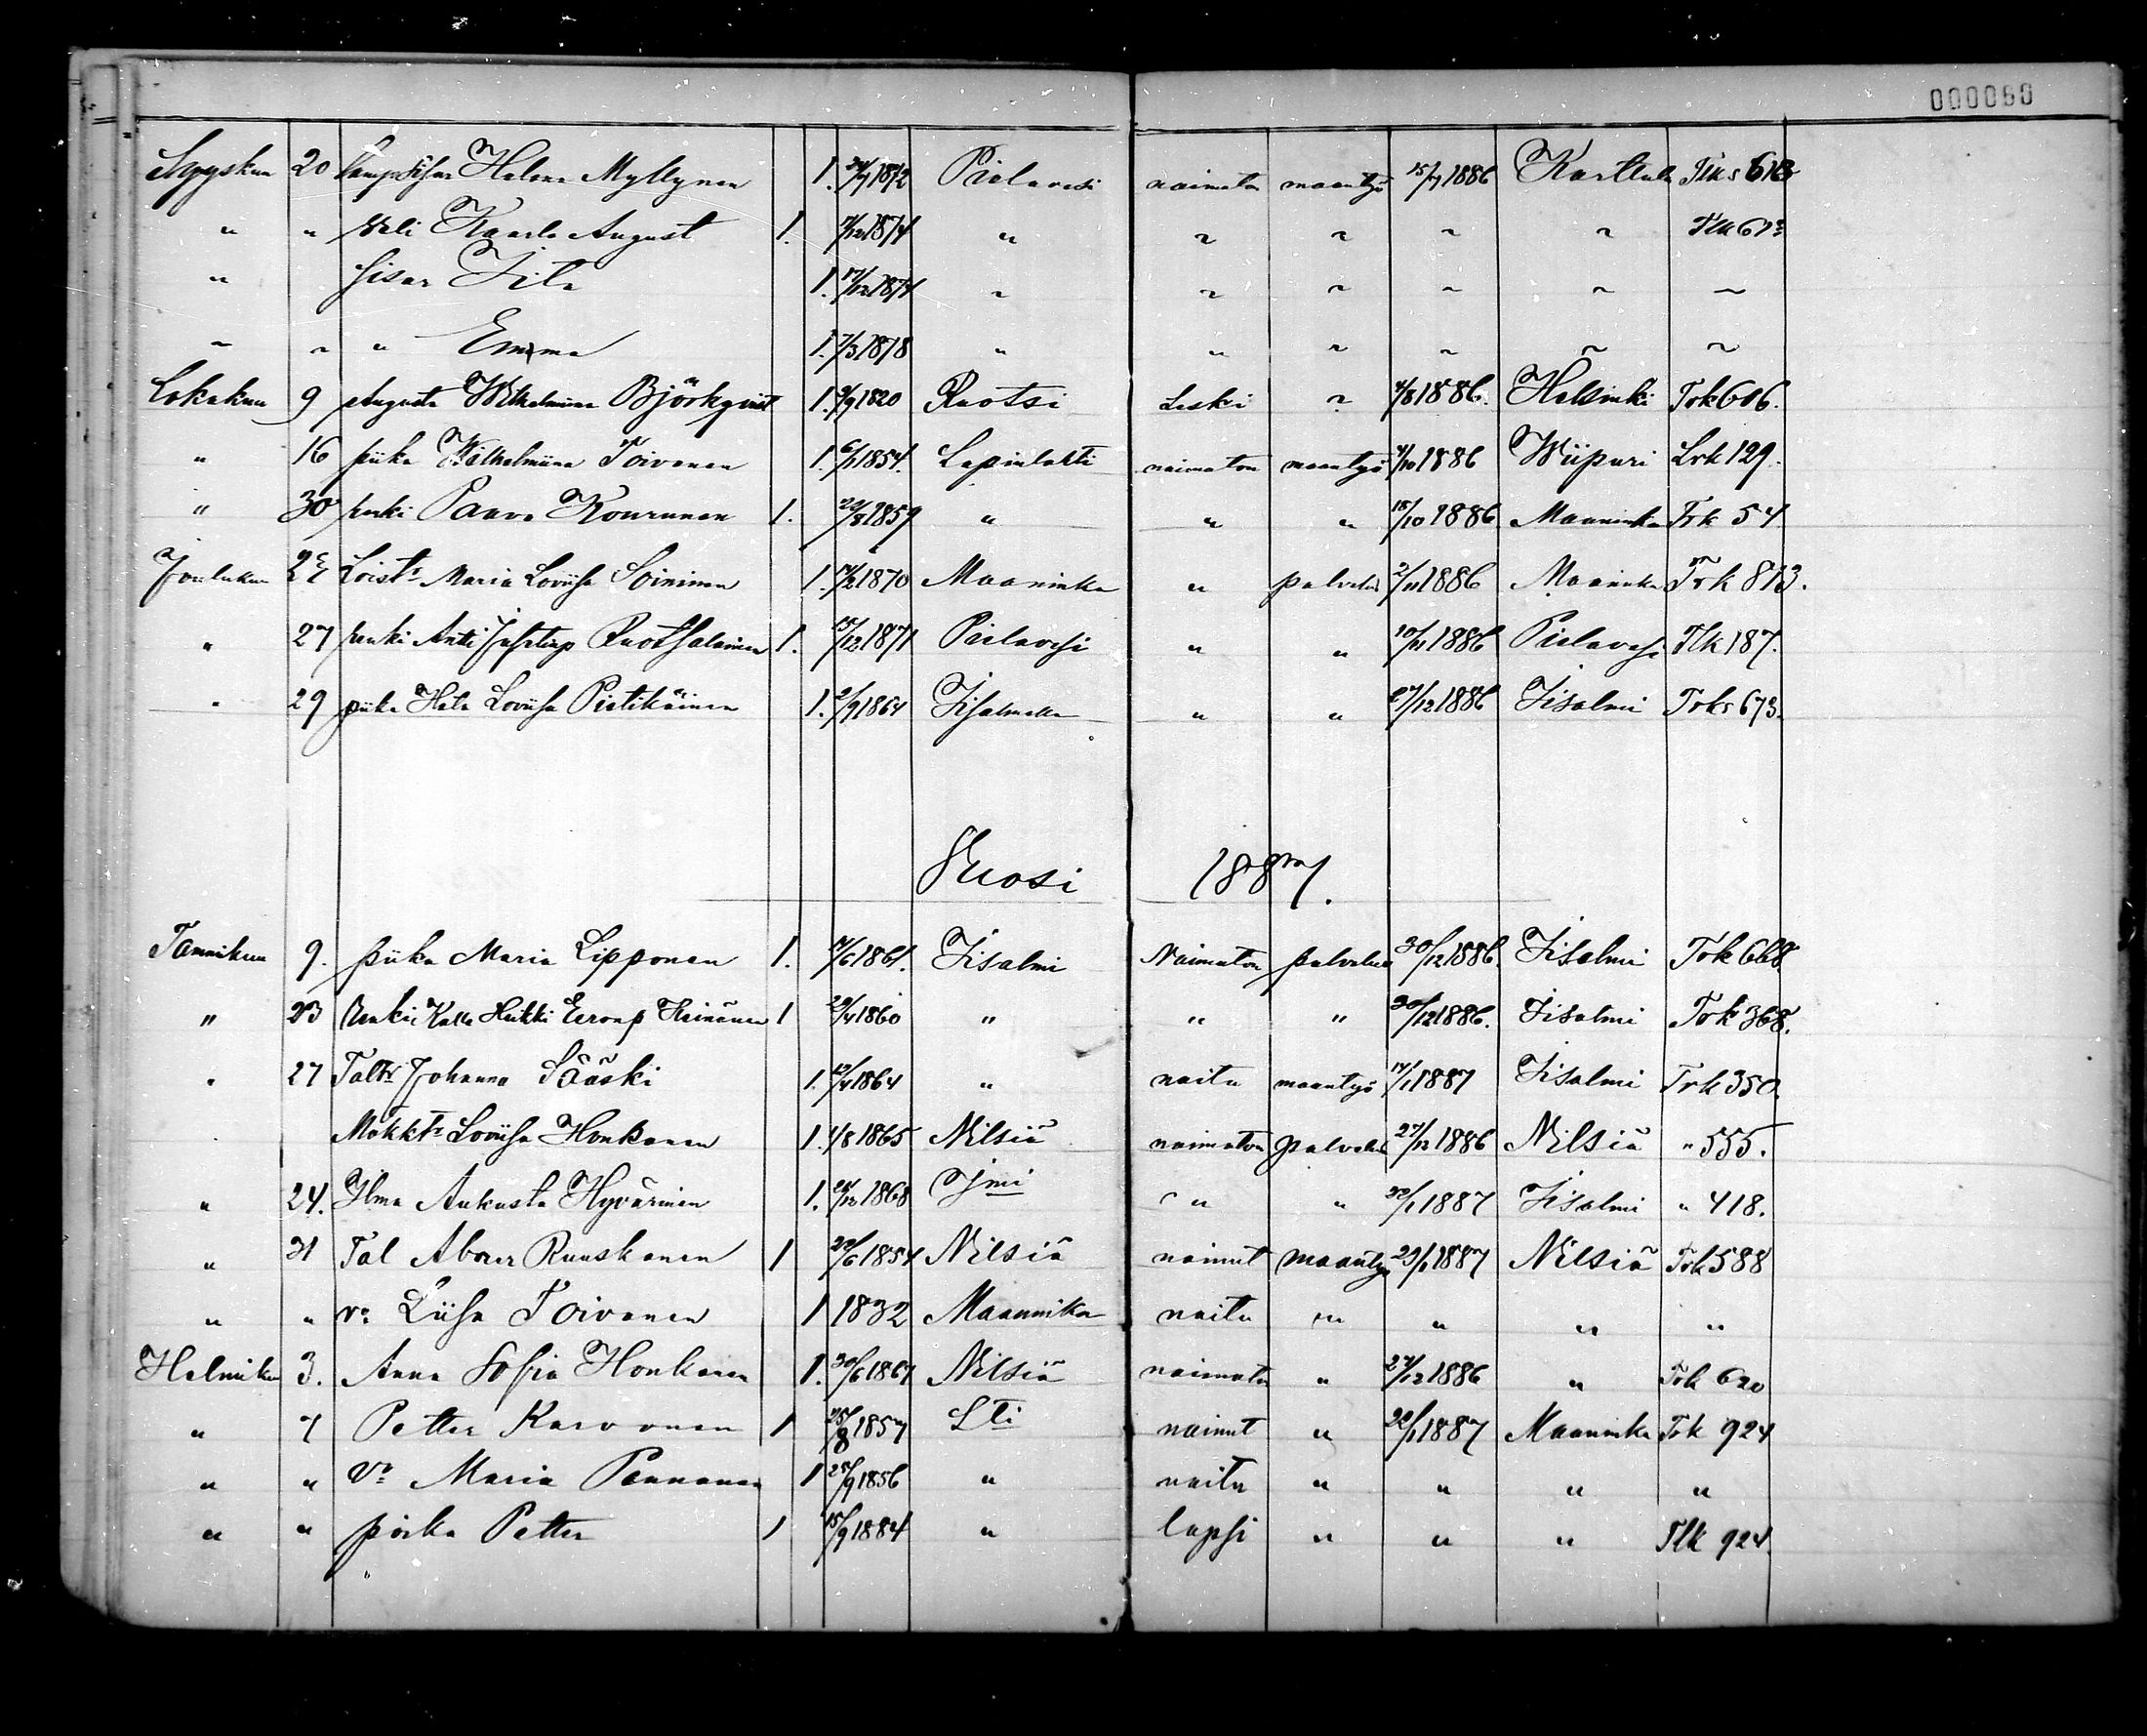 000090
Syyskuu 20 Helena Myllynen 1. 1872 Pielavesi naimaton maantyö 15/7 1886 Karttula Tlks 613
" " Veli Kaarlo August 1. 7/12 1874 " " " " " Tlk 613
" Sisar Iita 1. 17/12 1874 " " " " " "
" " " Emma 1. 7/3 1878 " " " " " "
Lokakuu 9 Augusta Wilhelmiina Björkqvist 1. 9/9 1820 Ruotsi Leski " 4/8 1886. Helsinki Tok 606.
" 16 piika Wilhelmiina Toivonen 1. 6/1 1854. Lapinlahti naimaton maantyö 4/10 1886 Wiipuri Lrk 129.
" 30 renki Paavo Kourunen 1. 23/8 1859 " " " 18/10 1886 Maaninka Trk 54
Joulukuu Loist:r Maria Loviisa Soininen 1. 1870 Maaninka " palvelus 2/11 1886 Maaninka Trk 813.
" 27 renki Antti Ruotsalainen 1. 15/12 1871 Pielavesi " " 10/11 1886 Pielavesi Tlk 187.
" 29 piika Heta Loviisa Pietikäinen 1. 2/9 1864 " " 27/12 1886 Iisalmi Toks 673.
Vuosi 1887.
Tammikuu 9. piika Maria Lipponen 1. 4/6 1861. Iisalmi Naimaton palvelus 30/12 1886. Iisalmi Tok 668.
" 23 Renki Kalle Heikki Eeronp Heinänen 1 29/4 1860 " " " 30/12 1886. Iisalmi Tok 368.
" 27 Taltr Johanna Sääski 1. 1864 " naitu maantyö 14/1 1887 Iisalmi Trk 350.
Mökkt:r Loviisa Honkanen 1. 4/8 1865 Nilsiä naimaton palvelus 27/12 1886 Nilsiä " 555.
" 24. Ilma Aukusta Hyvärinen 1. 24/12 1868 Ijmi " " 22/1 1887 Iisalmi " 418.
" 31 Tal Ruuskanen 1 22/6 1854 Nilsiä nainut maantyö 29/1 1887 Nilsiä Trk 588
" " v:o Liisa Toivanen 1 1832 Maaninka naitu " " " "
Helmikuu 3. Anna Sofia Honkanen 1. 30/6 1867 Nilsiä naimaton " 27/12 1886 " Tok 620
" 7 Petter Karvonen 1 25/8 1857 Lti nainut " 22/1 1887 Maaninka Tok 924
" " V:o Maria Pennanen 1 25/9 1856 " naitu " " " "
" " poika Petter 1 15/9 1884 " lapsi " " " Tlk 924.